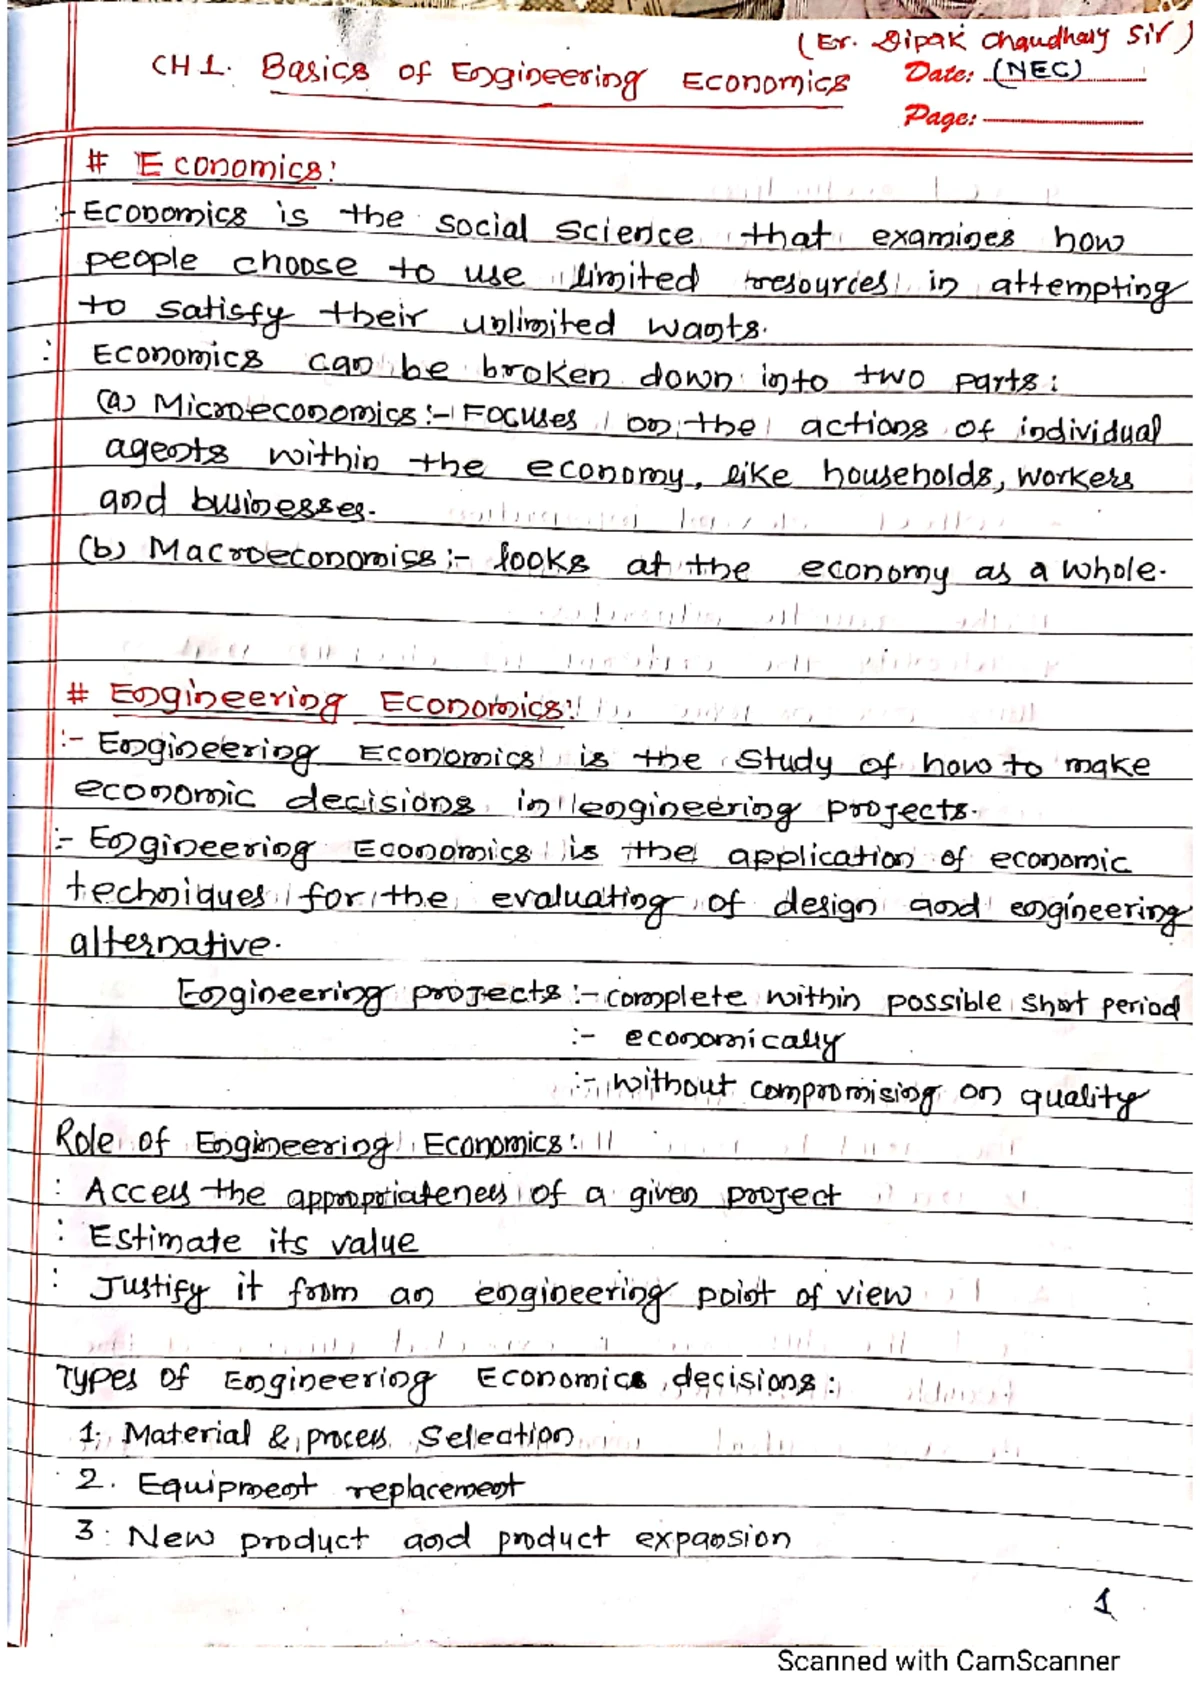 (Er. Dipak Chaudhary Sir)
CH 1. Basics of Engineering Economics
Date: (NEC)
Page:
# Economics:
:- Economics is the social science that examines how
people choose to use limited resources in attempting
to satisfy their unlimited wants.
: Economics can be broken down into two parts:
(a) Microeconomics:- Focuses on the actions of individual
agents within the economy, like households, workers
and businesses.
(b) Macroeconomics:- looks at the economy as a whole.
# Engineering Economics:
:- Engineering Economics is the study of how to make
economic decisions in engineering projects.
:- Engineering Economics is the application of economic
techniques for the evaluating of design and engineering
alternative.
Engineering projects :- complete within possible short period
:- economically
:- without compromising on quality
Role of Engineering Economics:
: Access the appropriateness of a given project
: Estimate its value
: Justify it from an engineering point of view
Types of Engineering Economics decisions:
1. Material & process selection
2. Equipment replacement
3. New product and product expansion
1
Scanned with CamScanner